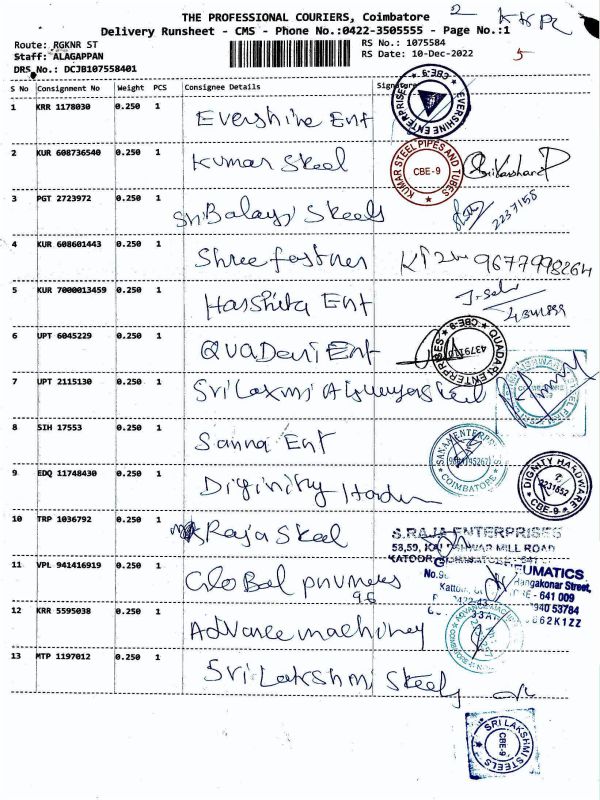 THE PROFESSIONAL COURIERS, Coimbatore
Delivery Runsheet - CMS - Phone No.:0422-3505555 - Page No.:1
2
Route: RGKNR ST
RS No.: 1075584
Staff: ALAGAPPAN
RS Date: 10-Dec-2022
5
DRS No.: DCJB107558401
S No Consignment No Weight PCS Consignee Details Signature
1 KRR 1178030 0.250 1 Evershine Ent
EVERSHINE ENTERPRISES CBE-9
2 KUR 608736540 0.250 1 Kumar Steel
KUMAR STEEL PIPES AND TUBES CBE-9
3 PGT 2723972 0.250 1 Sri Balaji Steels
2237158
4 KUR 608601443 0.250 1 Shree fastner
9677998264
5 KUR 7000013459 0.250 1 Harshita Ent
6 UPT 6045229 0.250 1 QUADARI Ent
QUADARI ENTERPRISES CBE-9
7 UPT 2115130 0.250 1 Sri Laxmi Steel
8 SIH 17553 0.250 1 Sanna Ent
SANAM ENTERPRISES COIMBATORE
9 EDQ 11748430 0.250 1 Diginity
DIGNITY HARDWARE 2231652 CBE-9
10 TRP 1036792 0.250 1 Raja Steel
S.RAJA ENTERPRISES
MILL ROAD
11 VPL 941416919 0.250 1 Global
96
Mangakonar Street,
641 009
940 53784
62K1ZZ
12 KRR 5595038 0.250 1 Advance machinery
13 MTP 1197012 0.250 1 Sri Lakshmi Steels
SRI LAKSHMI STEELS CBE-9